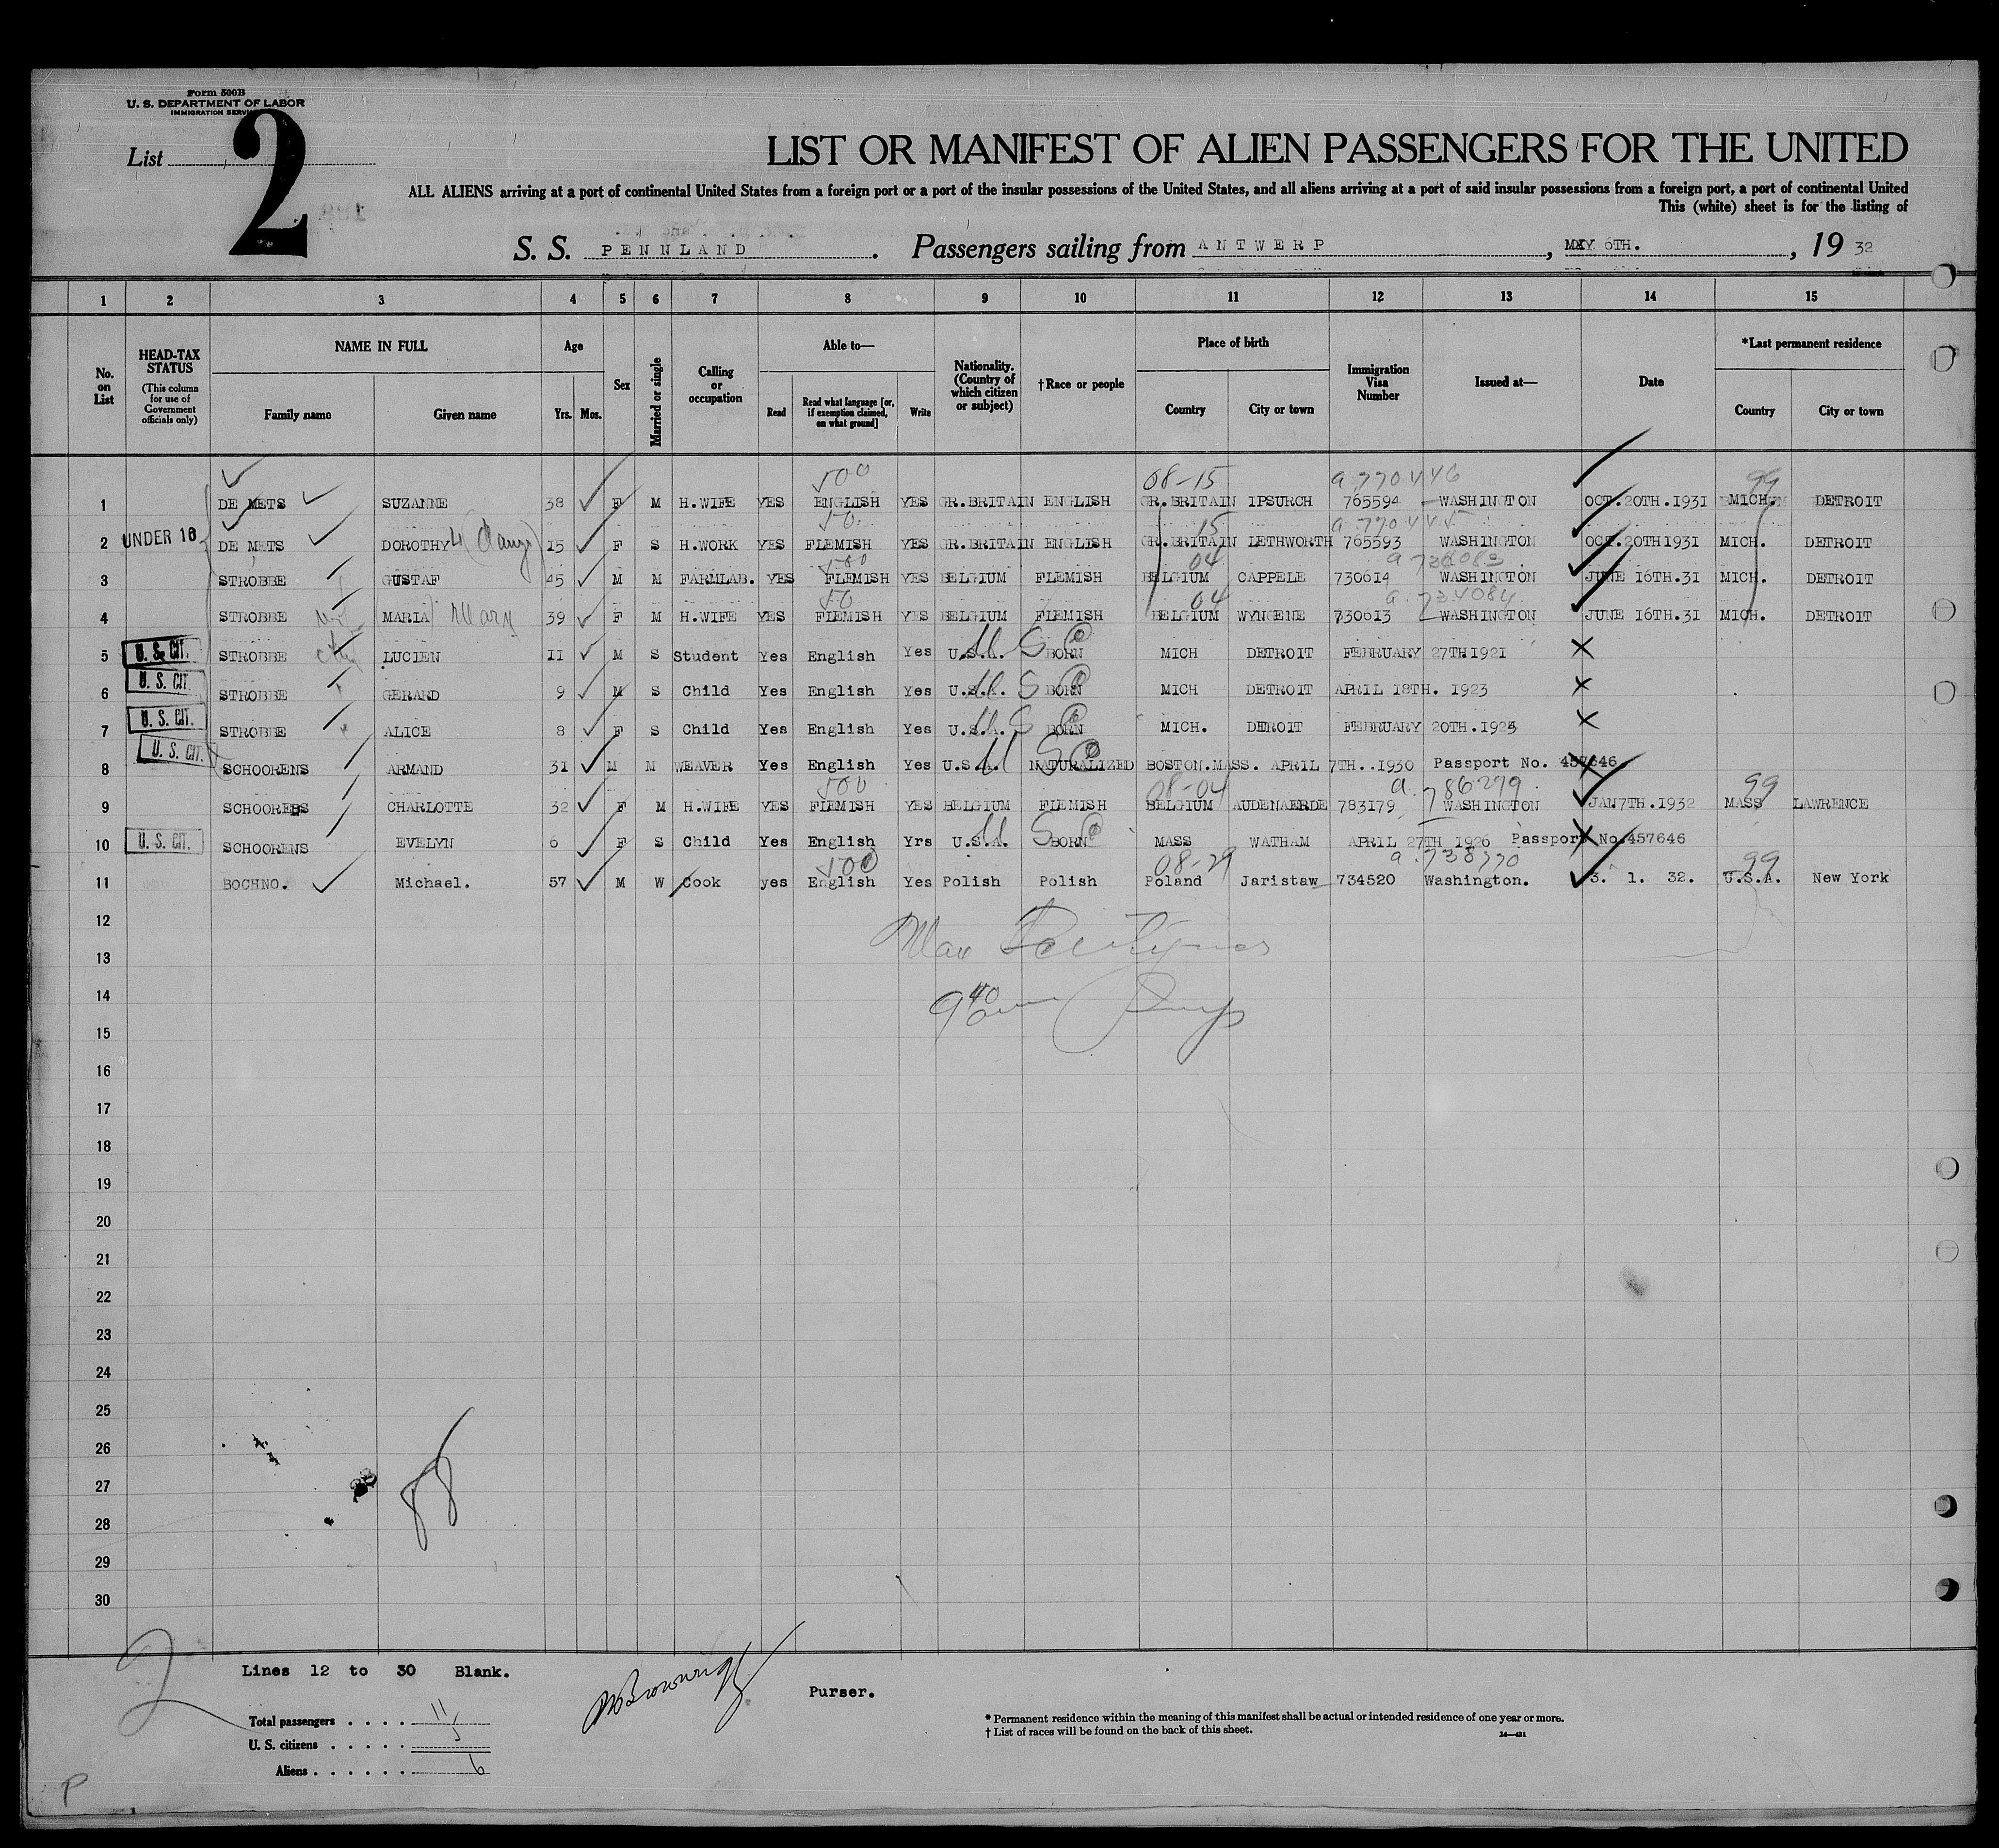 Form 500B
U. S. DEPARTMENT OF LABOR
IMMIGRATION SERVICE
List 2
LIST OR MANIFEST OF ALIEN PASSENGERS FOR THE UNITED
ALL ALIENS arriving at a port of continental United States from a foreign port or a port of the insular possessions of the United States, and all aliens arriving at a port of said insular possessions from a foreign port, a port of continental United
This (white) sheet is for the listing of
S. S. PENNLAND. Passengers sailing from ANTWERP, MAY 6TH., 1932
1 2 3 4 5 6 7 8 9 10 11 12 13 14 15
No. on List
HEAD-TAX STATUS (This column for use of Government officials only)
NAME IN FULL Family name Given name
Age Yrs. Mos.
Sex
Married or single
Calling or occupation
Able to— Read Read what language [or, if exemption claimed, on what ground] Write
Nationality. (Country of which citizen or subject)
†Race or people
Place of birth Country City or town
Immigration Visa Number
Issued at—
Date
*Last permanent residence Country City or town
500 08-15 a 770446 99
1 DE METS SUZANNE 38 F M H.WIFE YES ENGLISH YES GR.BRITAIN ENGLISH GR.BRITAIN IPSURCH 765594 WASHINGTON OCT.20TH.1931 MICH. DETROIT
50 15 a 770445
2 UNDER 16 DE METS DOROTHY 15 F S H.WORK YES FLEMISH YES GR.BRITAIN ENGLISH GR.BRITAIN LETHWORTH 765593 WASHINGTON OCT.20TH1931 MICH. DETROIT
500 04 a 734083
3 STROBBE GUSTAF 45 M M FARMLAB. YES FLEMISH YES BELGIUM FLEMISH BELGIUM CAPPELE 730614 WASHINGTON JUNE 16TH.31 MICH. DETROIT
50 04 a. 734084
4 STROBBE MARIA Mary 39 F M H.WIFE YES FLEMISH YES BELGIUM FLEMISH BELGIUM WYNGENE 730613 WASHINGTON JUNE 16TH.31 MICH. DETROIT
5 U. S. CIT. STROBBE LUCIEN 11 M S Student Yes English Yes U.S.A. US BORN MICH DETROIT FEBRUARY 27TH1921 X
6 U. S. CIT. STROBBE GERARD 9 M S Child Yes English Yes U.S.A. US BORN MICH DETROIT APRIL 18TH. 1923 X
7 U. S. CIT. STROBBE ALICE 8 F S Child Yes English Yes U.S.A. US BORN MICH. DETROIT FEBRUARY 20TH.1925 X
8 U. S. CIT. SCHOORENS ARMAND 31 M M WEAVER Yes English Yes U.S.A. US NATURALIZED BOSTON.MASS. APRIL 7TH..1930 Passport No. 457646. X
500 08-04 a. 786279 99
9 SCHOORENS CHARLOTTE 32 F M H.WIFE YES FLEMISH YES BELGIUM FLEMISH BELGIUM AUDENAERDE 783179 WASHINGTON JAN7TH.1932 MASS LAWRENCE
10 U. S. CIT. SCHOORENS EVELYN 6 F S Child Yes English Yrs U.S.A. US BORN MASS WATHAM APRIL 27TH 1926 Passport No.457646 X
500 08-29 a. 738770 99
11 BOCHNO. Michael. 57 M W Cook yes English Yes Polish Polish Poland Jaristaw 734520 Washington. 3. 1. 32. U.S.A. New York
12
13
14
9 40
15
16
17
18
19
20
21
22
23
24
25
26
27
28
29
30
88
2
Lines 12 to 30 Blank.
Purser.
Total passengers . . . . 11
U. S. citizens . . . . . 5
Aliens . . . . . . 6
* Permanent residence within the meaning of this manifest shall be actual or intended residence of one year or more.
† List of races will be found on the back of this sheet.
14—421
P